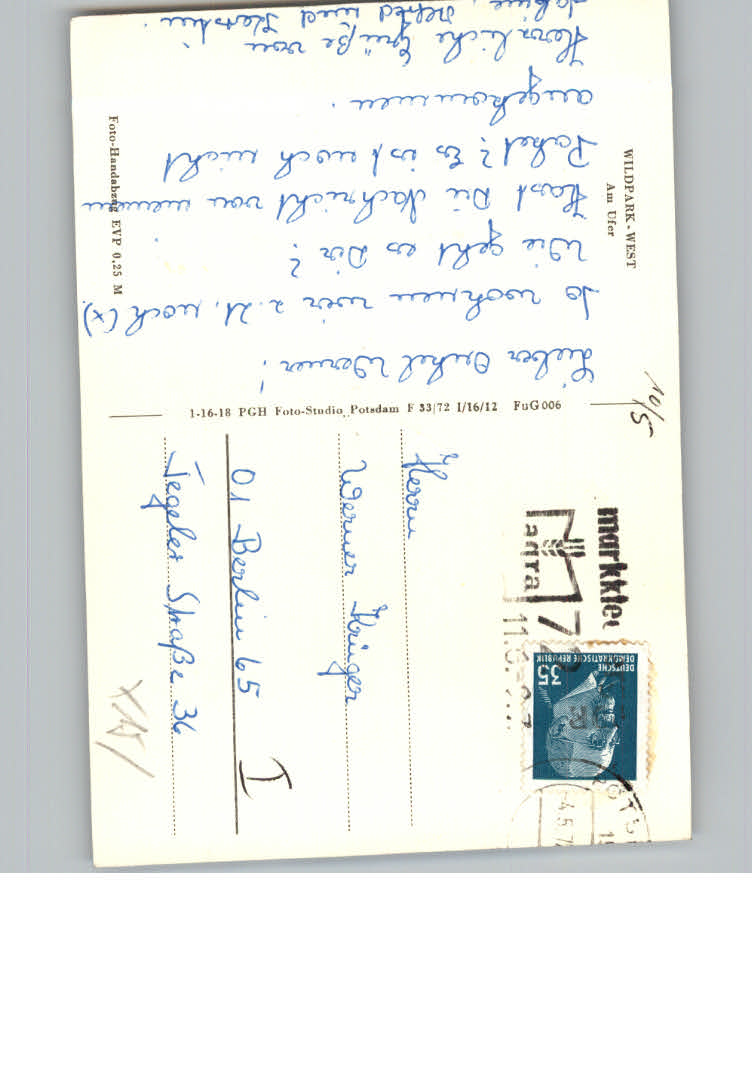 WILDPARK - WEST
Am Ufer
Lieber Onkel Werner!
So wohnen wir z. Zt. noch (x).
Wie geht es Dir?
Hast Du Nachricht von meinem
Paket? Es ist noch nicht
angekommen.
Herzliche Grüße von
Sabine, und Kerstin.
Foto-Handabzug EVP 0,25 M
1-16-18 PGH Foto-Studio Potsdam F 33/72 I/16/12 FuG006
10/5
markklee
agra
72
11.6.
DEUTSCHE
DEMOKRATISCHE REPUBLIK
35
4.5.7
15
Herrn
Werner Krüger
01 Berlin 65
I
Tegeler Straße 36